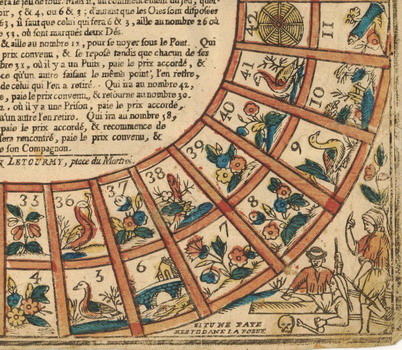 oir, 5 & 4, ou 6 & 3; d'autant que les Oies sont disposées
63, il faut que celui qui fera 6 & 3, aille au nombre 26 où
53, où sont marqués deux Dés.
& aille au nombre 12, pour se noyer sous le Pont. Qui
prix convenu, & se repose tandis que chacun de ses
bre 31, où il y a un Puits, paie le prix accordé, &
ce qu'un autre faisant le même point, l'en retire,
de celui qui l'en a retiré. - Qui ira au nombre 42,
, paie le prix convenu, & retourne au nombre 30.
2, où il y a une Prison, paie le prix accordé,
u'un autre l'en retire. Qui ira au nombre 58,
paie le prix accordé, & recommence de
sera rencontré, paie le prix convenu, &
e son Compagnon.
LETOURMY, place du Martroi.
42
41
40
39
38
37
36
11
10
9
8
6
4
SI TU NE PAYE